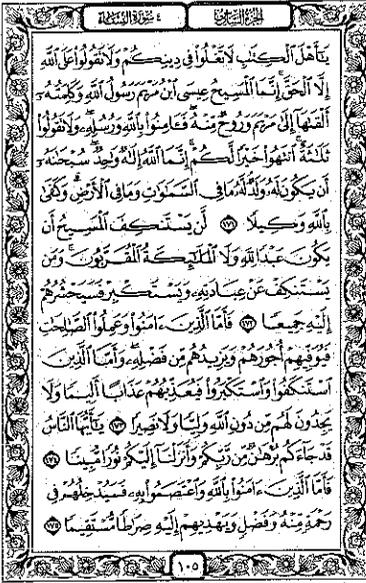 الجزء السادس
٤ سورة النساء
يَٰٓأَهۡلَ ٱلۡكِتَٰبِ لَا تَغۡلُواْ فِي دِينِكُمۡ وَلَا تَقُولُواْ عَلَى ٱللَّهِ
إِلَّا ٱلۡحَقَّۚ إِنَّمَا ٱلۡمَسِيحُ عِيسَى ٱبۡنُ مَرۡيَمَ رَسُولُ ٱللَّهِ وَكَلِمَتُهُۥٓ
أَلۡقَىٰهَآ إِلَىٰ مَرۡيَمَ وَرُوحٞ مِّنۡهُۖ فَـَٔامِنُواْ بِٱللَّهِ وَرُسُلِهِۦۖ وَلَا تَقُولُواْ
ثَلَٰثَةٌۚ ٱنتَهُواْ خَيۡرٗا لَّكُمۡۚ إِنَّمَا ٱللَّهُ إِلَٰهٞ وَٰحِدٞۖ سُبۡحَٰنَهُۥٓ
أَن يَكُونَ لَهُۥ وَلَدٞۘ لَّهُۥ مَا فِي ٱلسَّمَٰوَٰتِ وَمَا فِي ٱلۡأَرۡضِۗ وَكَفَىٰ
بِٱللَّهِ وَكِيلٗا ١٧١ لَّن يَسۡتَنكِفَ ٱلۡمَسِيحُ أَن
يَكُونَ عَبۡدٗا لِّلَّهِ وَلَا ٱلۡمَلَٰٓئِكَةُ ٱلۡمُقَرَّبُونَۚ وَمَن
يَسۡتَنكِفۡ عَنۡ عِبَادَتِهِۦ وَيَسۡتَكۡبِرۡ فَسَيَحۡشُرُهُمۡ
إِلَيۡهِ جَمِيعٗا ١٧٢ فَأَمَّا ٱلَّذِينَ ءَامَنُواْ وَعَمِلُواْ ٱلصَّٰلِحَٰتِ
فَيُوَفِّيهِمۡ أُجُورَهُمۡ وَيَزِيدُهُم مِّن فَضۡلِهِۦۖ وَأَمَّا ٱلَّذِينَ
ٱسۡتَنكَفُواْ وَٱسۡتَكۡبَرُواْ فَيُعَذِّبُهُمۡ عَذَابًا أَلِيمٗا وَلَا
يَجِدُونَ لَهُم مِّن دُونِ ٱللَّهِ وَلِيّٗا وَلَا نَصِيرٗا ١٧٣ يَٰٓأَيُّهَا ٱلنَّاسُ
قَدۡ جَآءَكُم بُرۡهَٰنٞ مِّن رَّبِّكُمۡ وَأَنزَلۡنَآ إِلَيۡكُمۡ نُورٗا مُّبِينٗا ١٧٤
فَأَمَّا ٱلَّذِينَ ءَامَنُواْ بِٱللَّهِ وَٱعۡتَصَمُواْ بِهِۦ فَسَيُدۡخِلُهُمۡ فِي
رَحۡمَةٖ مِّنۡهُ وَفَضۡلٖ وَيَهۡدِيهِمۡ إِلَيۡهِ صِرَٰطٗا مُّسۡتَقِيمٗا ١٧٥
١٠٥